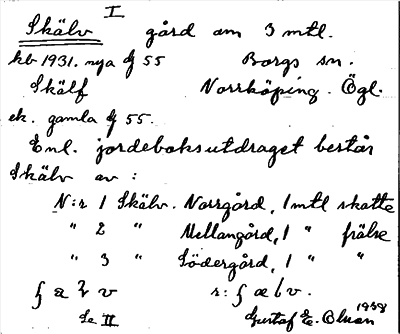 I
Skälv gård om 3 mtl.
kb 1931. nya 55 Borgs sn.
Skälf Norrköping. Ögl.
ek. gamla 55.
Enl. jordeboksutdraget består
Skälv av :
N:r 1 Skälv. Norrgård, 1 mtl skatte
" 2 " Mellangård, 1 " frälse
" 3 " Södergård, 1 " "
Se II Gustaf E. Olsson 1938